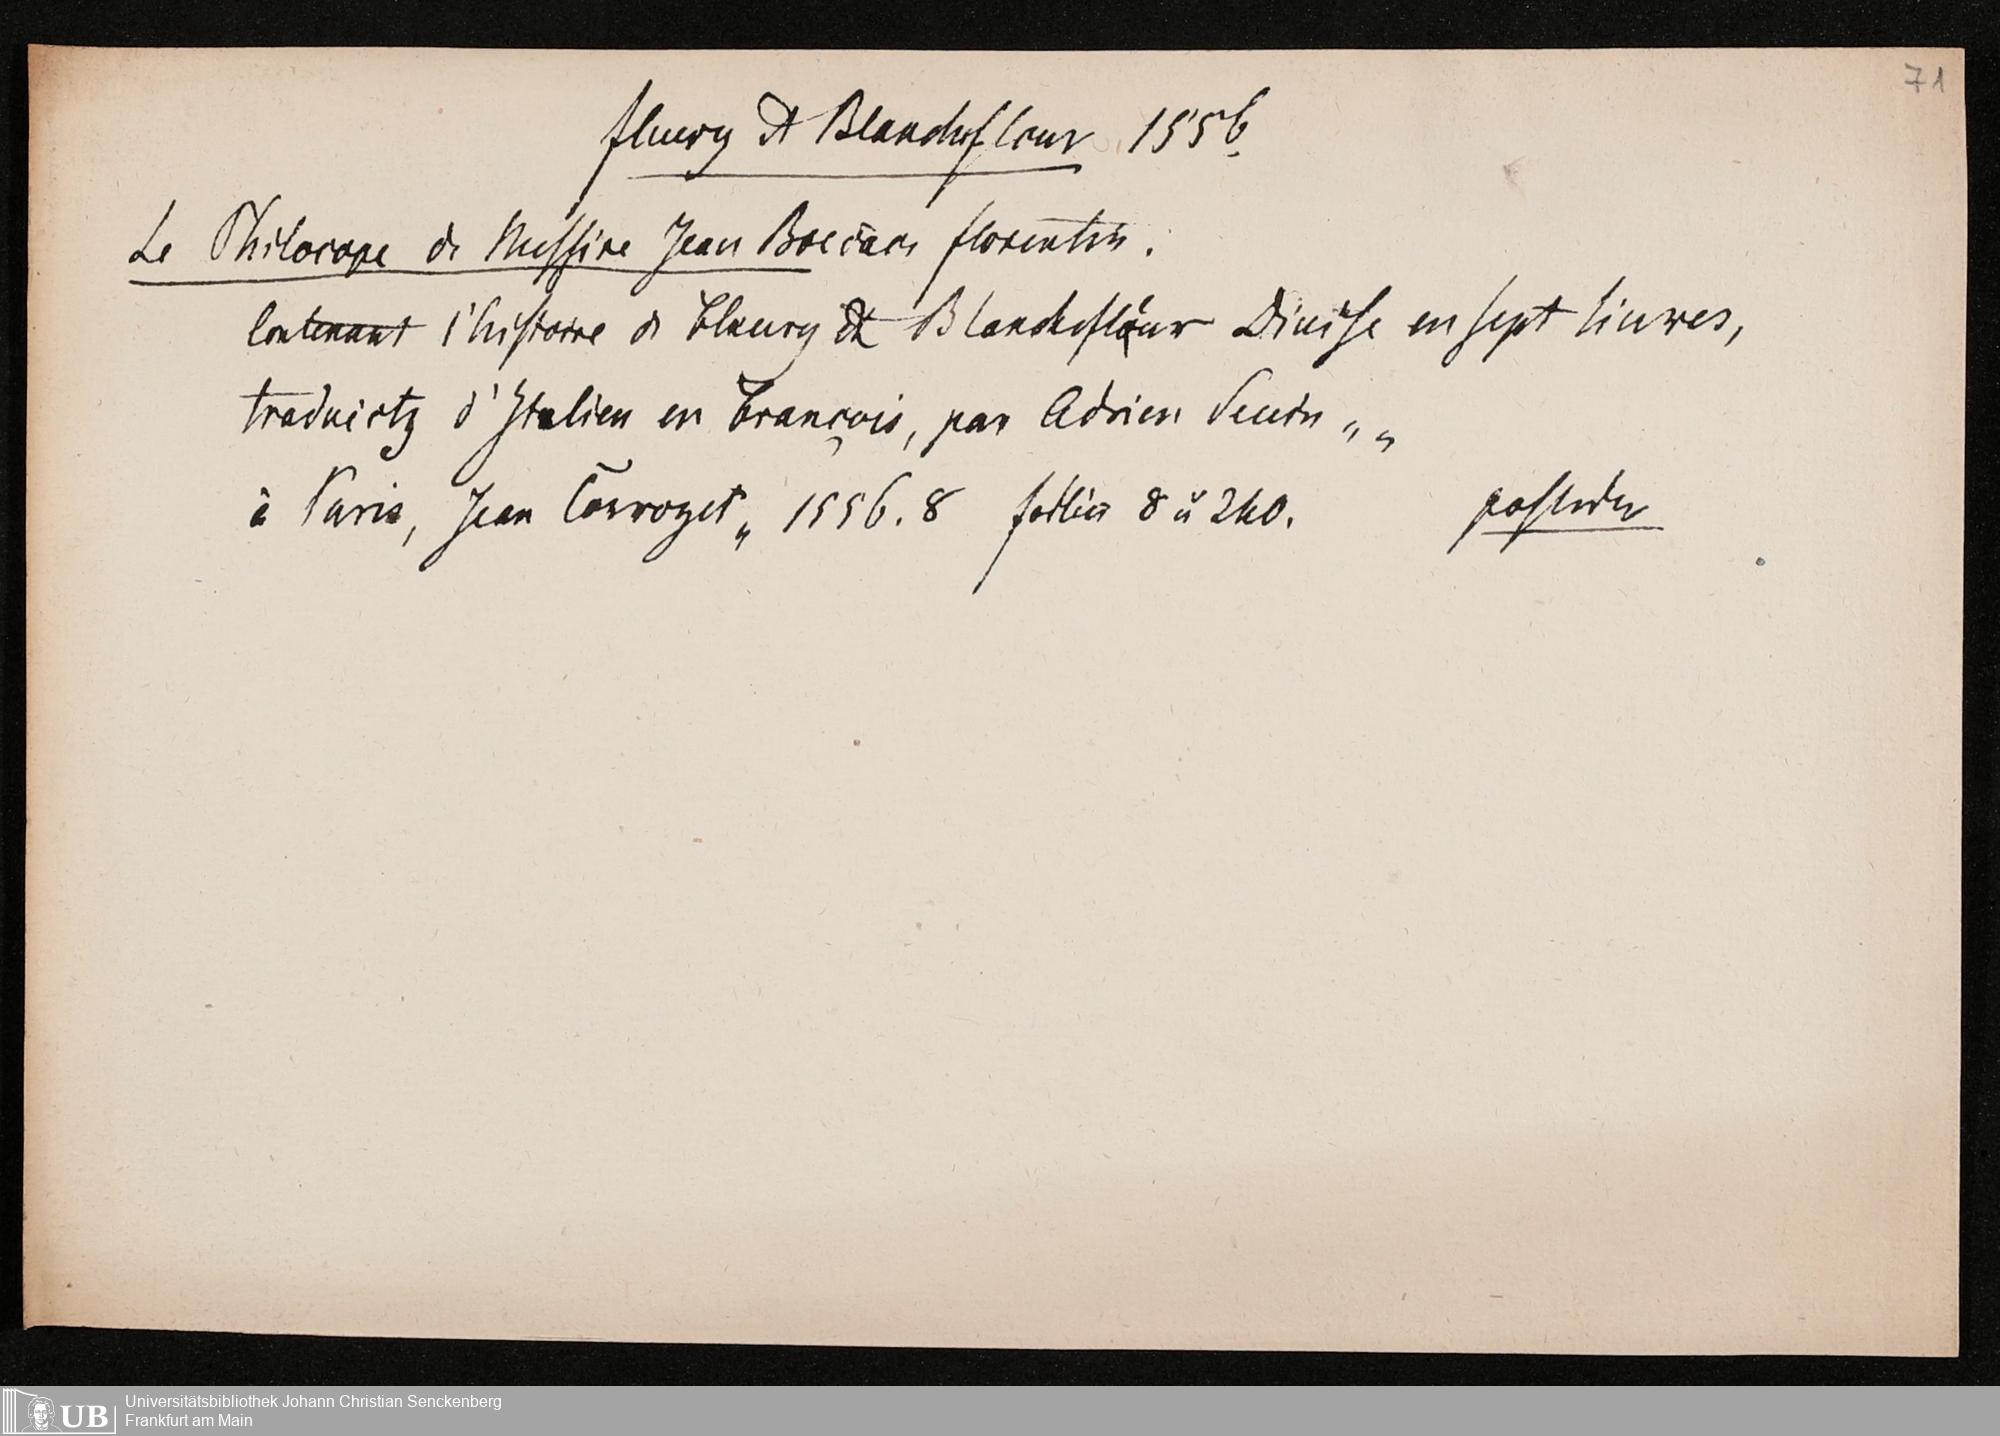 71
fleury et Blanchefleur 1556.
Le Philocope de Messire Jean Boccace florentin.
Contenant l'histoire de fleury et Blanchefleur Diuise en sept liures,
traduictz d'Italien en françois, par Adrien Seuin „ „
à Paris, Jean Corrozet „ 1556. 8 8 u 240.
UB Universitätsbibliothek Johann Christian Senckenberg
Frankfurt am Main